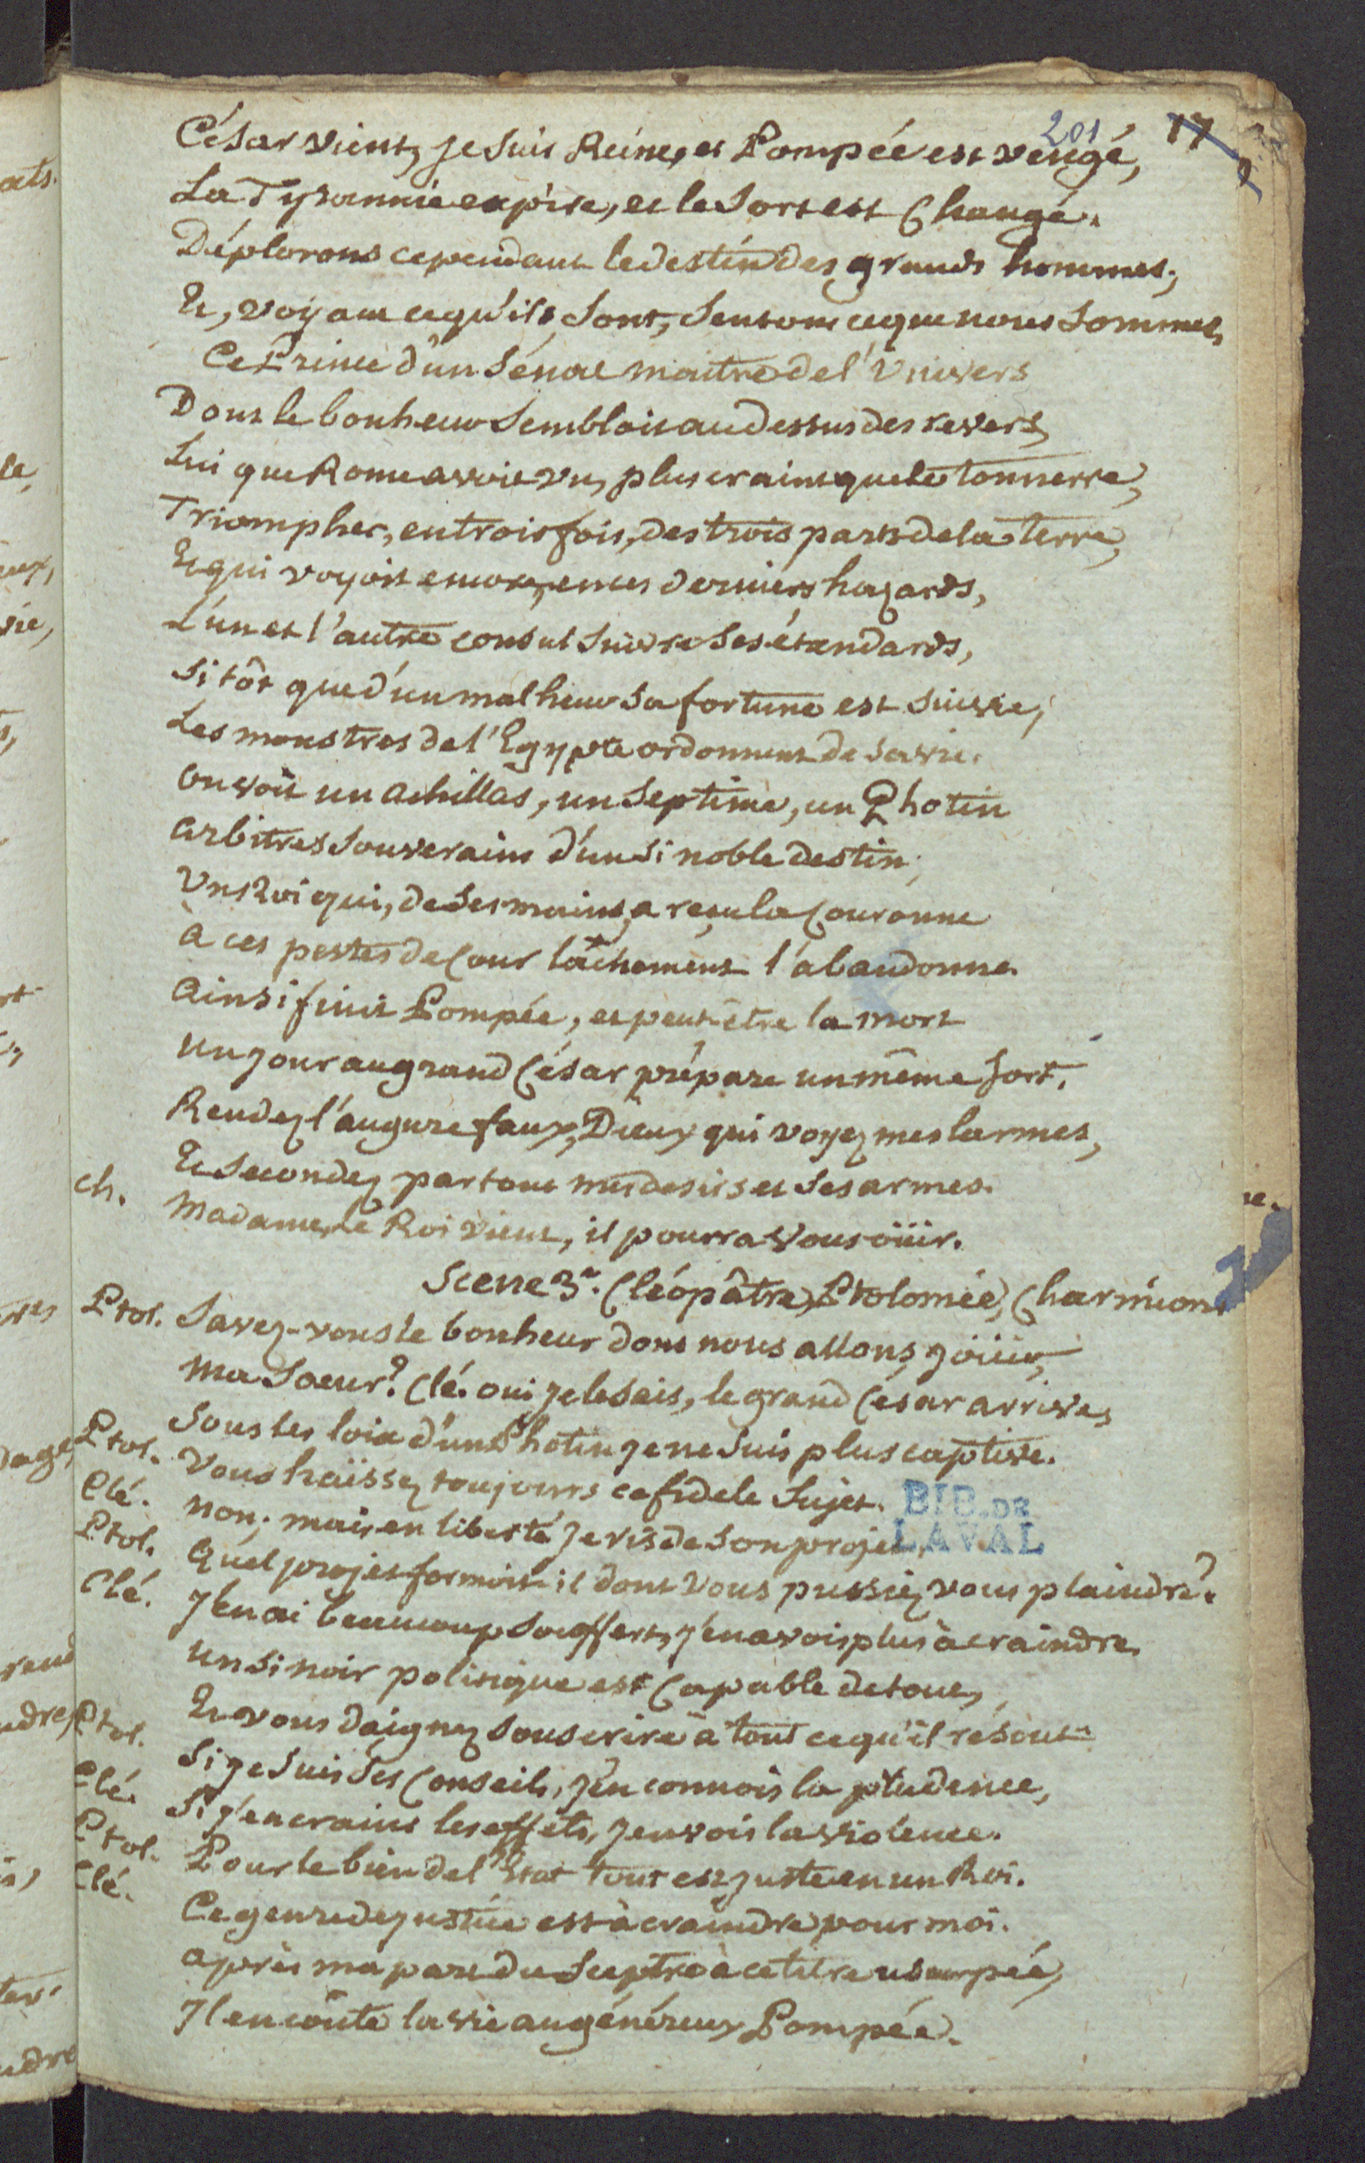 201 17
César vient, je suis Reine, et Pompée est vengé,
La Tyrannie expire, et le Sort est Changé.
Déplorons cependant le destin des grands hommes,
Et, voyant ce qu'ils sont, sentons ce que nous sommes,
Ce Prince d'un Sénat maitre de l'Univers
Dont le bonheur sembloit au dessus des revers,
Lui que Rome avoit vu, plus craint que le tonnerre,
Triompher, en trois fois, des trois parts de la terre,
Et qui voyoit encore, en ces derniers hazards,
L'un et l'autre consul suivre ses étandards,
Si tôt que d'un malheur sa fortune est suivie,
Les monstres de l'Egypte ordonnent de sa vie.
On voit un Achillas, un Septime, un Photin
Arbitres souverains d'un si noble destin;
Un Roi qui, de ses mains, a reçu la Couronne
à ces pestes de Cour lâchement l'abandonne.
Ainsi finit Pompée, et peut-être la mort
Un jour au grand César prépare un même sort.
Rendez l'augure faux, Dieux qui voyez mes larmes,
Et secondez partout mes desirs et ses armes.
Ch. Madame, le Roi vient, il pourra vous oüir.
Scene 3e. Cléopâtre, Ptolomée, Charmion.
Ptol. Savez-vous le bonheur dont nous allons joüir,
Ma Soeur? Clé. oui je le sais, le grand César arrive,
Sous les loix d'un Photin je ne suis plus captive.
Ptol. Vous haïssez toujours ce fidele Sujet.
Clé. non; mais en liberté je ris de son projet.
Ptol. Quel projet formoit-il dont vous pussiez vous plaindre?
Clé. J'en ai beaucoup souffert, j'en avois plus à craindre.
Un si noir politique est Capable de tout,
Et vous daignez souscrire à tout ce qu'il résout.
Ptol. Si je suis ses Conseils, j'en connois la prudence,
Clé. Si j'en crains les effets, j'en vois la violence.
Ptol. Pour le bien de l'Etat tout est juste en un Roi.
Clé. Ce genre de justice est à craindre pour moi.
Après ma part du Sceptre à ce titre usurpée,
Il en coûte la vie au généreux Pompée.
BIB. DE
LAVAL